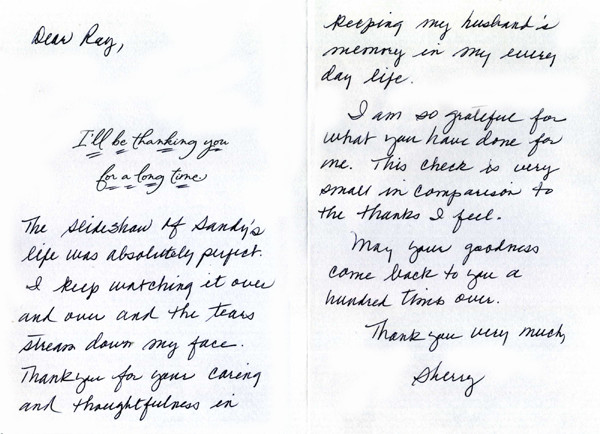 Dear Ray,
I'll be thanking you
for a long time
The slideshow of Sandy's
life was absolutely perfect.
I keep watching it over
and over and the tears
stream down my face.
Thank you for your caring
and thoughtfulness in
keeping my husband's
memory in my every
day life.
I am so grateful for
what you have done for
me. This check is very
small in comparison to
the thanks I feel.
May your goodness
come back to you a
hundred times over.
Thank you very much,
Sherry